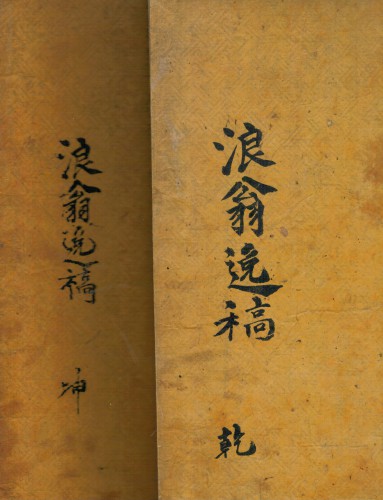 浪翁逸稿
乾
浪翁逸稿
坤